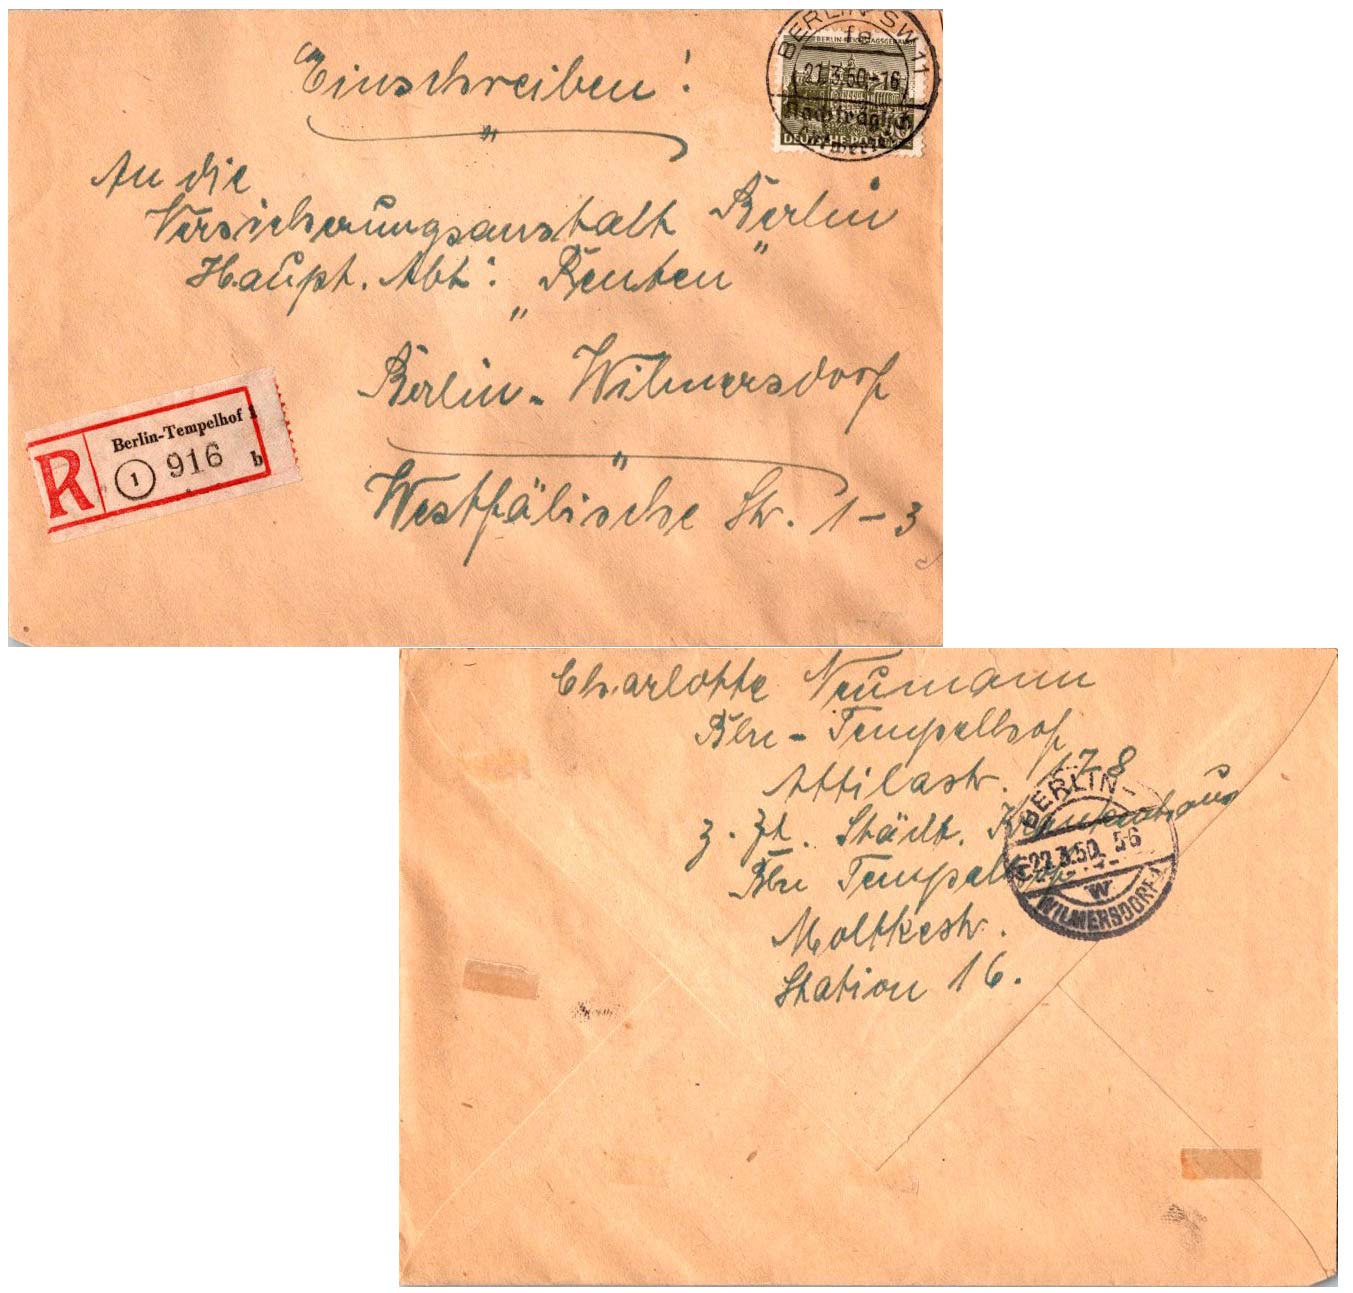 Einschreiben!
BERLIN SW 11
fe
BERLIN-REICHSTAGSGEBÄUDE
21.3.50-16
Nachträglich
entwertet
DEUTSCHE POST
An die
Versicherungsanstalt Berlin
Haupt. Abt: „Renten"
Berlin-Wilmersdorf
Westfälische Str. 1-3
R
Berlin-Tempelhof 1
1 916 b
Charlotte Neumann
Bln-Tempelhof
Attilastr. 178
z. Zt. Städt. Krankenhaus
Bln Tempelhof
Moltkestr.
Station 16.
BERLIN-
22.3.50. 5-6
W
WILMERSDORF 1